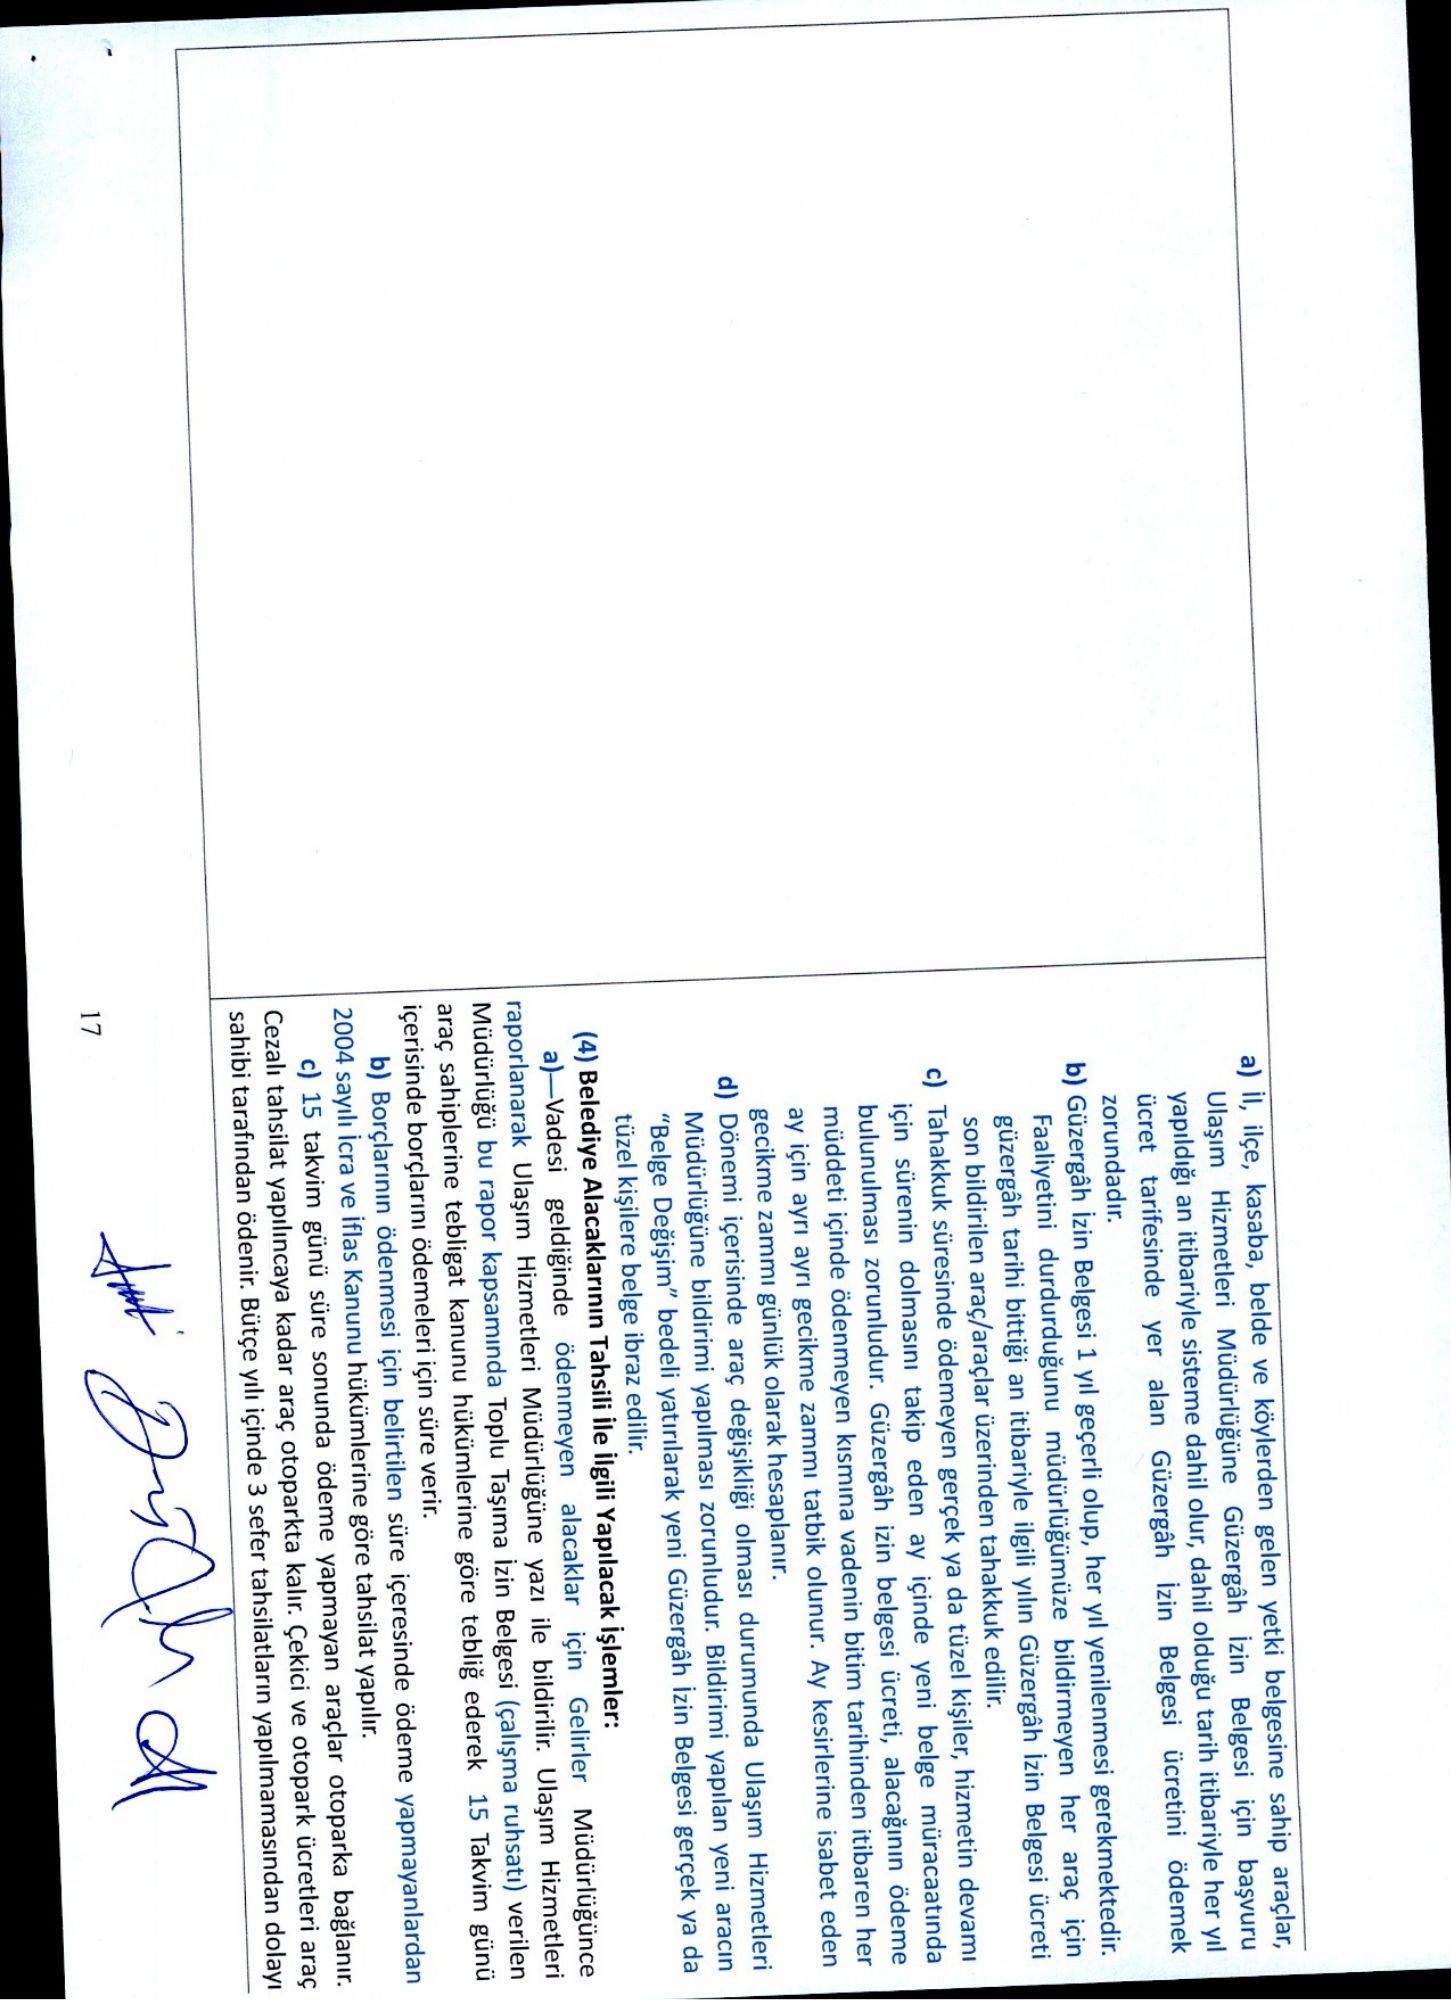 a) İl, ilçe, kasaba, belde ve köylerden gelen yetki belgesine sahip araçlar,
Ulaşım Hizmetleri Müdürlüğüne Güzergâh İzin Belgesi için başvuru
yapıldığı an itibariyle sisteme dahil olur, dahil olduğu tarih itibariyle her yıl
ücret tarifesinde yer alan Güzergâh İzin Belgesi ücretini ödemek
zorundadır.
b) Güzergâh İzin Belgesi 1 yıl geçerli olup, her yıl yenilenmesi gerekmektedir.
Faaliyetini durdurduğunu müdürlüğümüze bildirmeyen her araç için
güzergâh tarihi bittiği an itibariyle ilgili yılın Güzergâh İzin Belgesi ücreti
son bildirilen araç/araçlar üzerinden tahakkuk edilir.
c) Tahakkuk süresinde ödemeyen gerçek ya da tüzel kişiler, hizmetin devamı
için sürenin dolmasını takip eden ay içinde yeni belge müracaatında
bulunulması zorunludur. Güzergâh izin belgesi ücreti, alacağının ödeme
müddeti içinde ödenmeyen kısmına vadenin bitim tarihinden itibaren her
ay için ayrı ayrı gecikme zammı tatbik olunur. Ay kesirlerine isabet eden
gecikme zammı günlük olarak hesaplanır.
d) Dönemi içerisinde araç değişikliği olması durumunda Ulaşım Hizmetleri
Müdürlüğüne bildirimi yapılması zorunludur. Bildirimi yapılan yeni aracın
“Belge Değişim” bedeli yatırılarak yeni Güzergâh İzin Belgesi gerçek ya da
tüzel kişilere belge ibraz edilir.
(4) Belediye Alacaklarının Tahsili İle İlgili Yapılacak İşlemler:
a)—Vadesi geldiğinde ödenmeyen alacaklar için Gelirler Müdürlüğünce
raporlanarak Ulaşım Hizmetleri Müdürlüğüne yazı ile bildirilir. Ulaşım Hizmetleri
Müdürlüğü bu rapor kapsamında Toplu Taşıma İzin Belgesi (çalışma ruhsatı) verilen
araç sahiplerine tebligat kanunu hükümlerine göre tebliğ ederek 15 Takvim günü
içerisinde borçlarını ödemeleri için süre verir.
b) Borçlarının ödenmesi için belirtilen süre içeresinde ödeme yapmayanlardan
2004 sayılı İcra ve İflas Kanunu hükümlerine göre tahsilat yapılır.
c) 15 takvim günü süre sonunda ödeme yapmayan araçlar otoparka bağlanır.
Cezalı tahsilat yapılıncaya kadar araç otoparkta kalır. Çekici ve otopark ücretleri araç
sahibi tarafından ödenir. Bütçe yılı içinde 3 sefer tahsilatların yapılmamasından dolayı
17